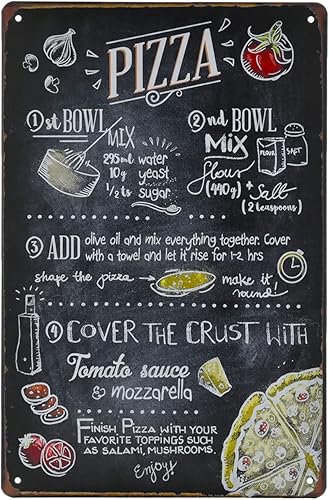 PIZZA
1st BOWL
MIX
295ml water
10g yeast
1/2 ts sugar
2nd BOWL
Mix
flour
(440g) + Salt
(2 teaspoons)
FLOUR
SALT
3 ADD olive oil and mix everything together. Cover
with a towel and let it rise for 1-2 hrs
shape the pizza
make it
round!
4 COVER THE CRUST WITH
Tomato sauce
& mozzarella
FINISH PIZZA WITH YOUR
FAVORITE TOPPINGS SUCH
AS SALAMI, MUSHROOMS.
Enjoy!